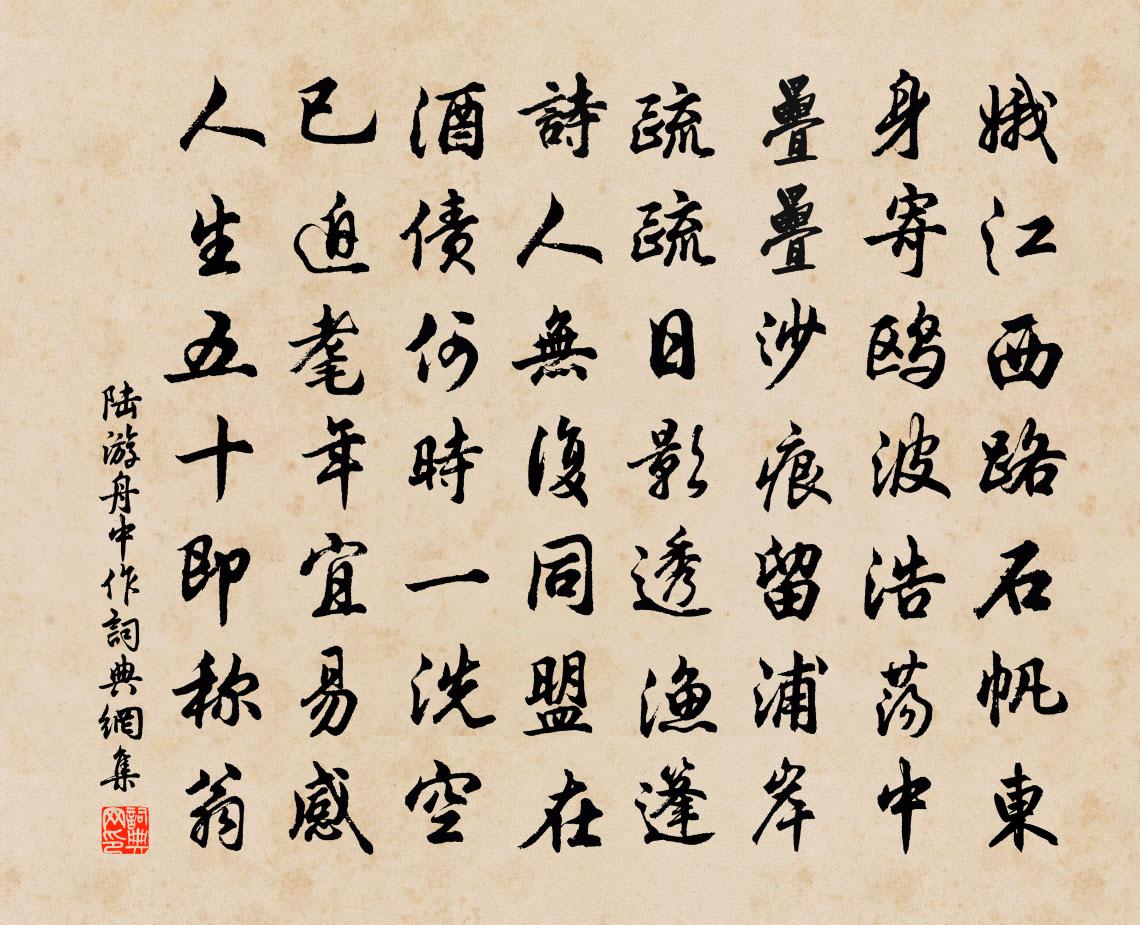 娥江西路石帆東
身寄鸥波浩荡中
疊疊沙痕留浦岸
疏疏日影透漁蓬
詩人無復同盟在
酒債何時一洗空
已迫耄年宜易感
人生五十即称翁
陆游舟中作詞典網集
詞典网印